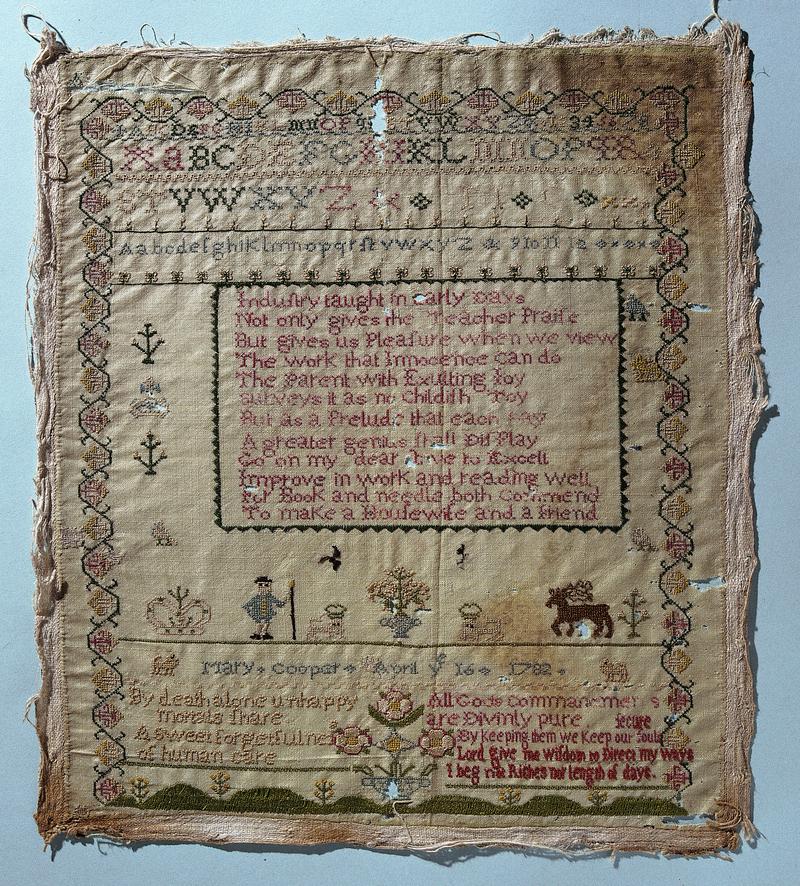 W X Y Z
A a B C D E F G H I K L M N O P Q R
S T V W X Y Z &
A a b c d e f g h i K l m n o p q r ſ t v w x y Z & 9 10 11 12
Induſtry taught in early Days
Not only gives the Teacher Praiſe
But gives us Pleaſure when we view
The work that Innocence can do
The Parent with Exulting Joy
Surveys it as no Childiſh Toy
But as a Prelude that each Day
A greater genius ſhall Diſplay
Go on my dear to Excell
Improve in work and reading well
For Book and needle both Commend
To make a Houſewife and a friend
Mary Cooper April 16 1782
By death alone unhappy
mortals ſhare
A Sweet forgetfulneſ
of human care
All Gods commanements
are Divinly pure
ſecure
By Keeping them we Keep our Souls
Lord give me Wiſdom to Direct my ways
I beg not Riches nor length of days.